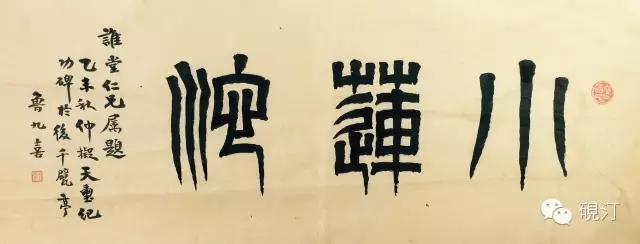 小蓮沱
誰堂仁兄属題
乙未秋仲擬天璽紀
功碑於後千甓亭
魯九喜
硯汀